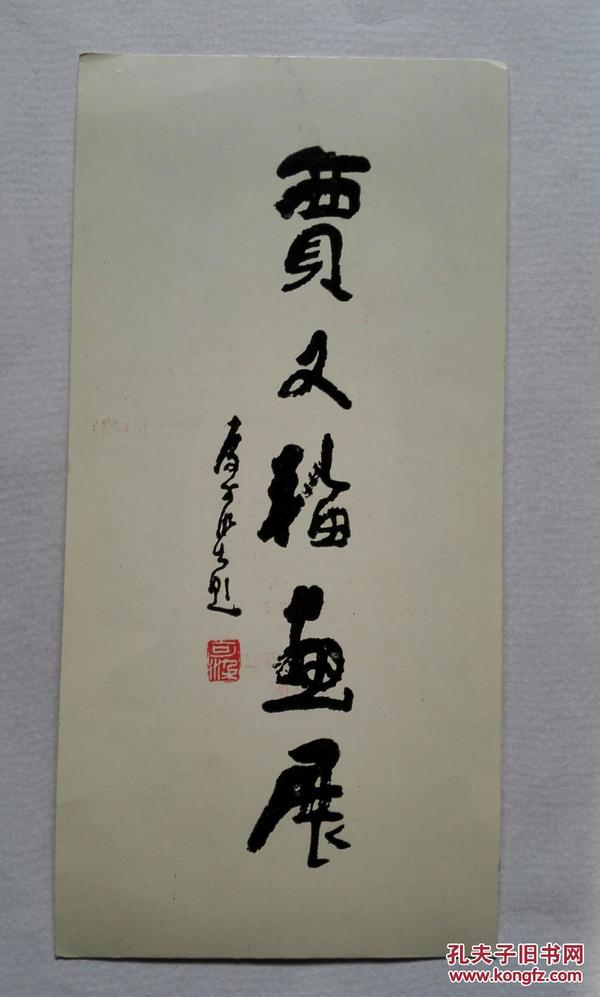 賈又福畫展
李可染題
可染
孔夫子旧书网
www.kongfz.com